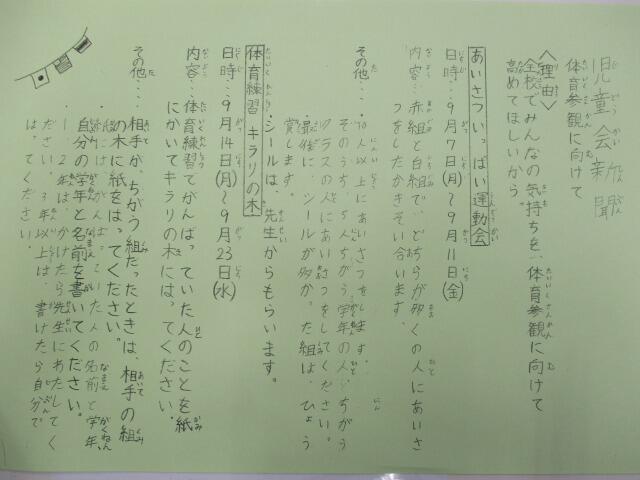 児童会新聞
体育参観に向けて
〈理由〉
全校でみんなの気持ちを、体育参観に向けて
高めてほしいから。
あいさついっぱい運動会
日時…9月7日(月)～9月11日(金)
内容…赤組と白組で、どちらが多くの人にあいさ
つをしたかきそい合います。
その他…10人以上にあいさつをします。
そのうち、5人ちがう学年の人、ちがう
クラスの人にあいさつをしてください。
最後に、シールが多かった組は、ひょう
賞します。
シールは、先生からもらいます。
体育練習 キラリの木
日時…9月14日(月)～9月23日(水)
内容…体育練習でがんばっていた人のことを紙
にかいてキラリの木にはってください。
その他…相手が、ちがう組だったときは、相手の組
の木に紙をはってください。
がんばっていた人の名前と学年、
自分の学年と名前を書いてください。
1、2年は、かけたら先生にわたしてく
ださい。3年以上は、書けたら自分で
はってください。